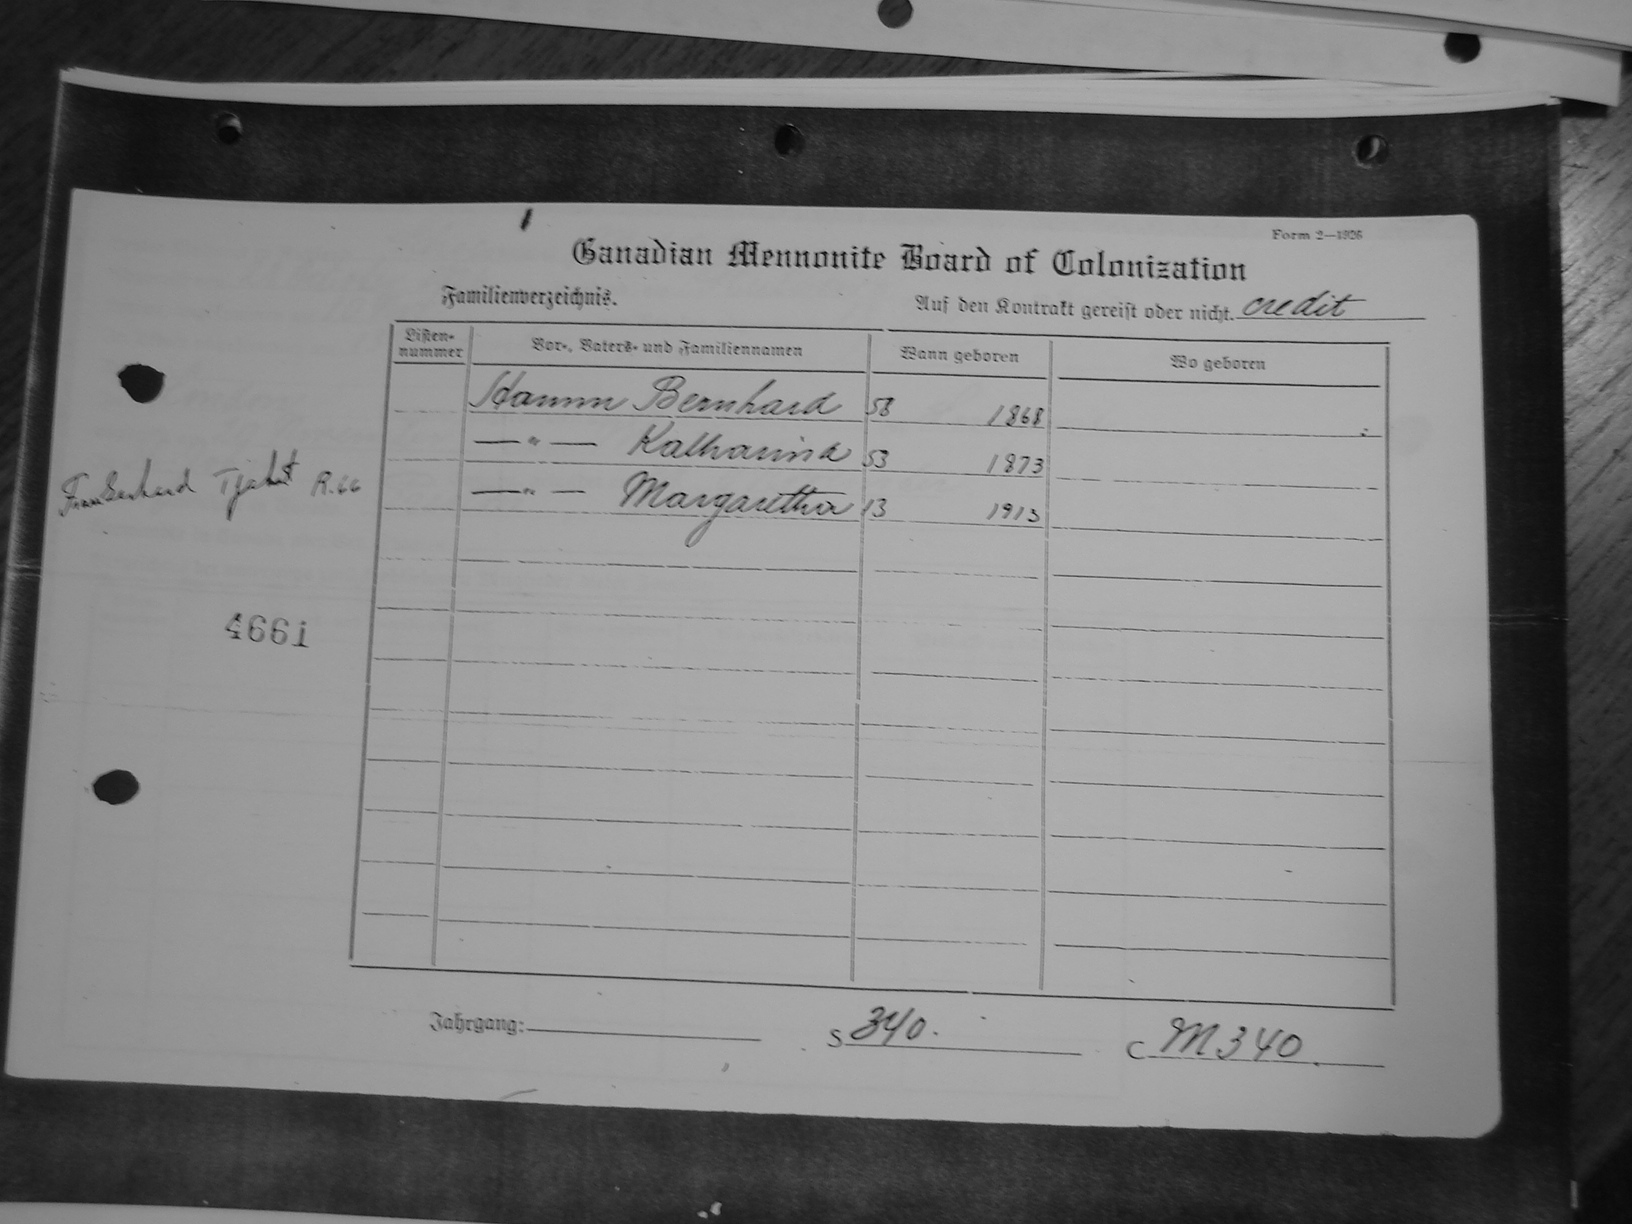 Form 2—1926
Canadian Mennonite Board of Colonization
Familienverzeichnis.
Auf den Kontrakt gereist oder nicht. credit
Listen-
nummer
Vor-, Vaters- und Familiennamen
Wann geboren
Wo geboren
Hamm Bernhard 58 1868
—"— Katharina 53 1873
—"— Margaretha 13 1913
Gerhard R.66
4661
Jahrgang:
S 340.
C M340